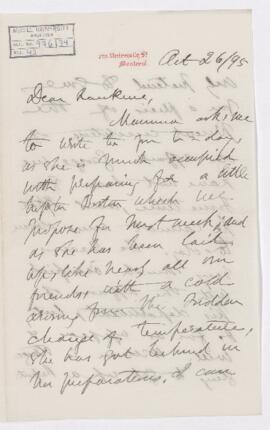 McGILL UNIVERSITY
ARCHIVES
ACC. NO. 976/34
REF. 43
Montreal.
Oct 26/95
Dear Rankine,
Mamma asks me
to write to you to-day,
as she is much occupied
with preparing for a little
trip to Boston which we
propose for next week; and
as she has been laid
up, like nearly all our
friends, with a cold
arising from the sudden
change of temperature,
she has got behind in
her preparations. I can